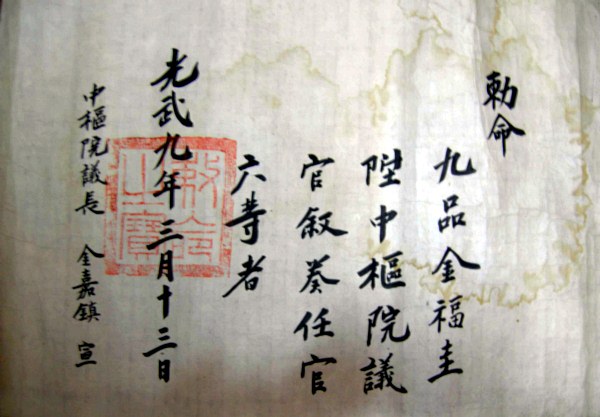 勅命
九品金福圭
陞中樞院議
官敘奏任官
六等者
光武九年三月十三日
勅命之寶
中樞院議長 金嘉鎮 宣